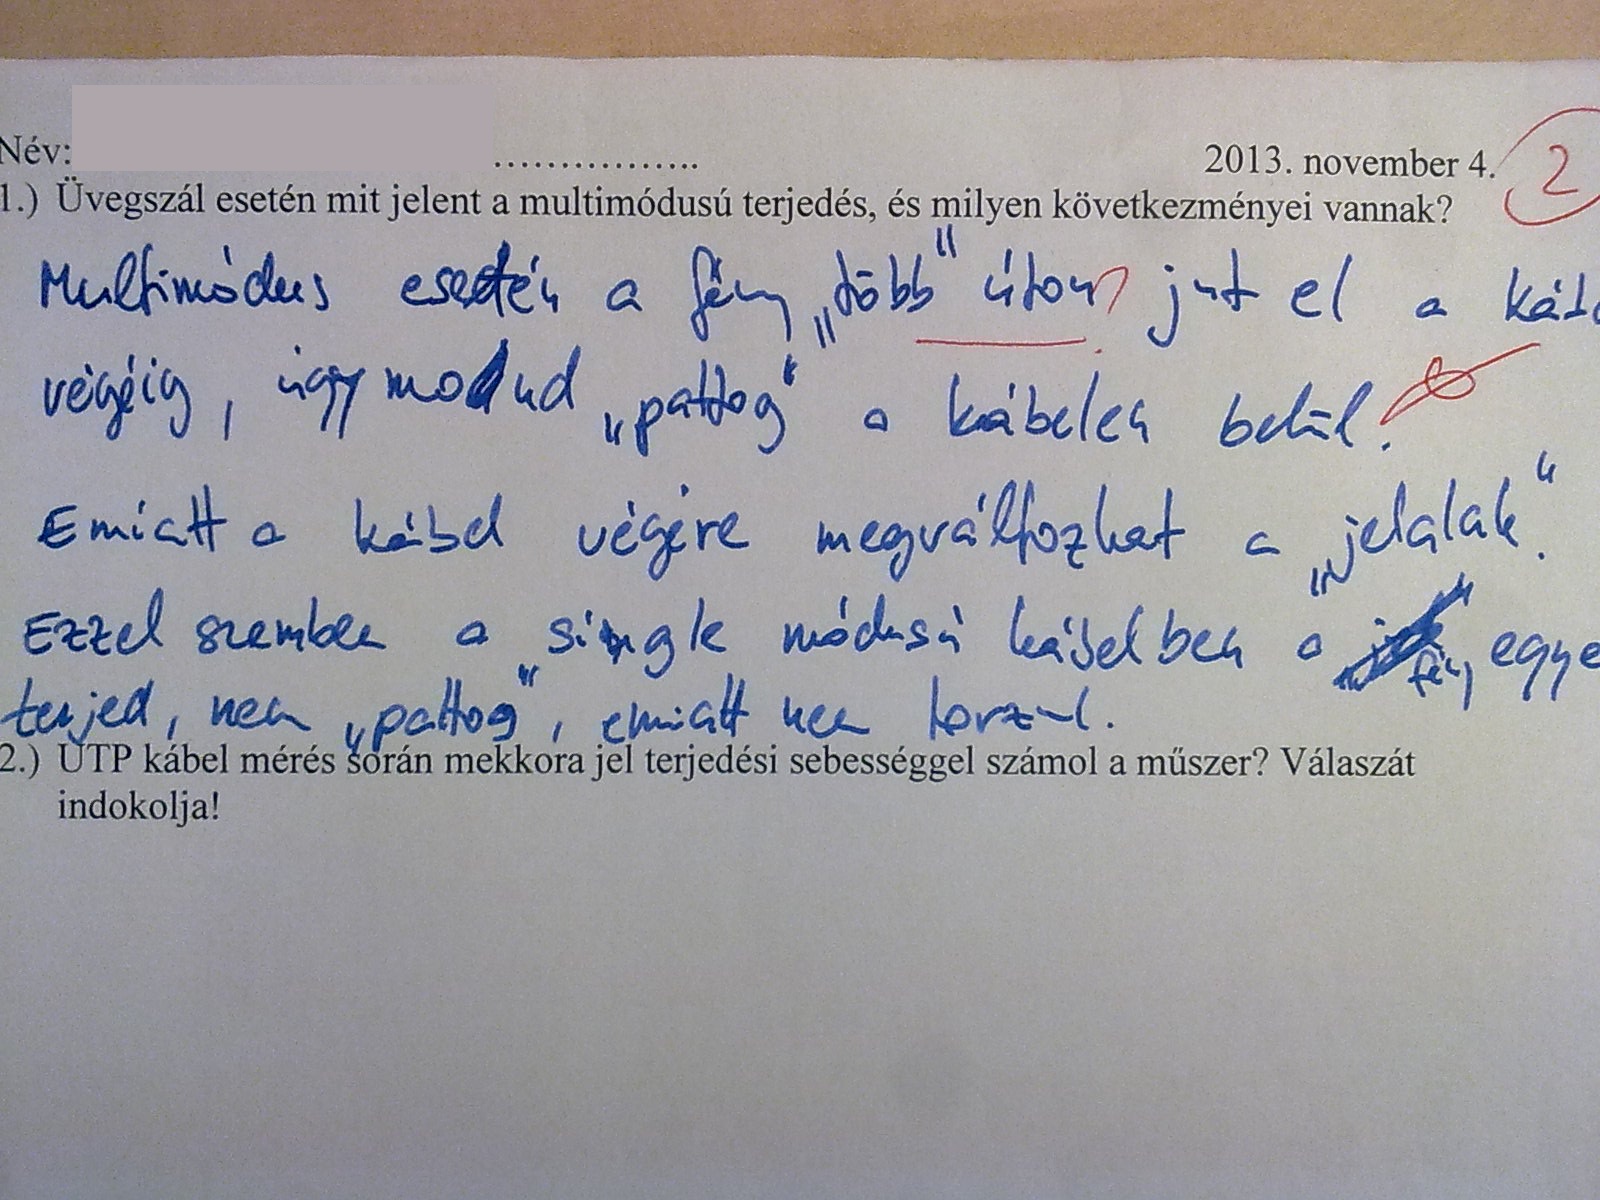 Név: .................. 2013. november 4. 2
1.) Üvegszál esetén mit jelent a multimódusú terjedés, és milyen következményei vannak?
Multimódus esetén a fény „több" úton ? jut el a
végéig, úgymond „pattog" a kábelen belül.
Emiatt a kábel végére megváltozhat a „jelalak".
Ezzel szemben a single módusú kábelben a fény
terjed, nem „pattog", emiatt nem torzul.
2.) UTP kábel mérés során mekkora jel terjedési sebességgel számol a műszer? Válaszát
indokolja!